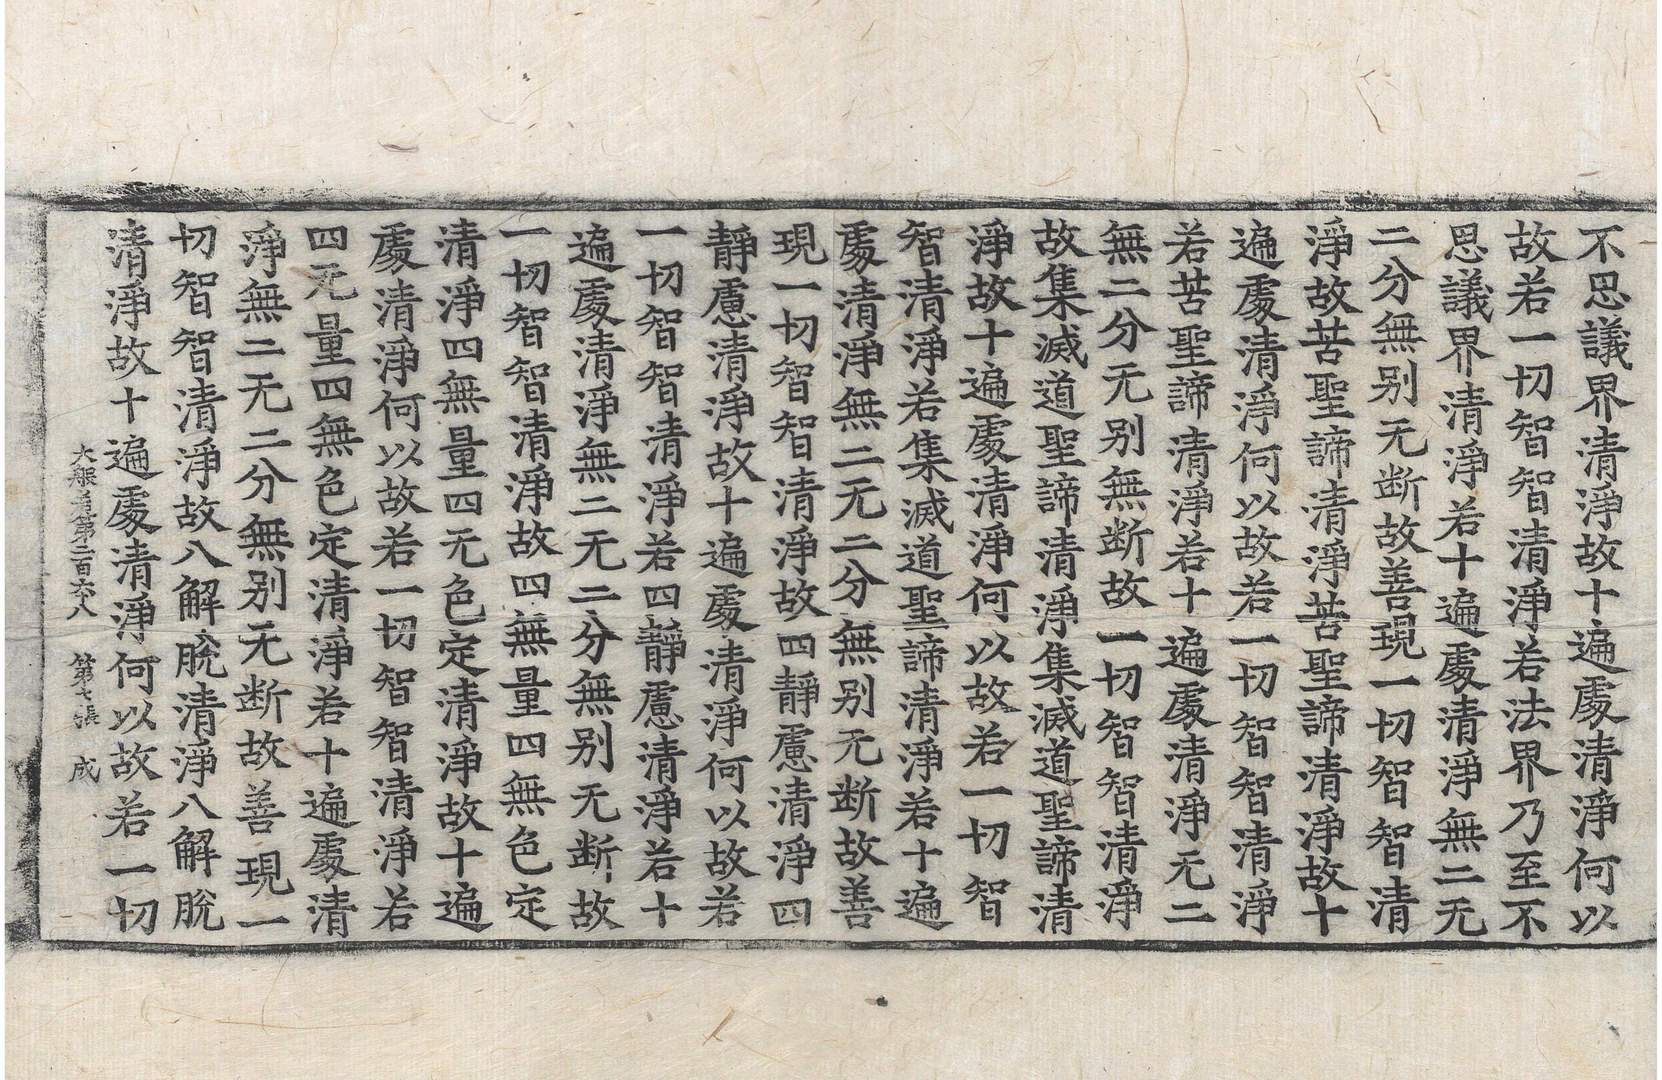 不思議界清淨故十遍處清淨何以
故若一切智智清淨若法界乃至不
思議界清淨若十遍處清淨無二无
二分無别无断故善現一切智智清
淨故苦聖諦清淨苦聖諦清淨故十
遍處清淨何以故若一切智智清淨
若苦聖諦清淨若十遍處清淨无二
無二分无别無断故一切智智清淨
故集滅道聖諦清淨集滅道聖諦清
淨故十遍處清淨何以故若一切智
智清淨若集滅道聖諦清淨若十遍
處清淨無二无二分無别无断故善
現一切智智清淨故四靜慮清淨四
靜慮清淨故十遍處清淨何以故若
一切智智清淨若四靜慮清淨若十
遍處清淨無二无二分無别无断故
一切智智清淨故四無量四無色定
清淨四無量四无色定清淨故十遍
處清淨何以故若一切智智清淨若
四无量四無色定清淨若十遍處清
淨無二无二分無别无断故善現一
切智智清淨故八解脫清淨八解脫
清淨故十遍處清淨何以故若一切
大般若第二百六八 第七張 成